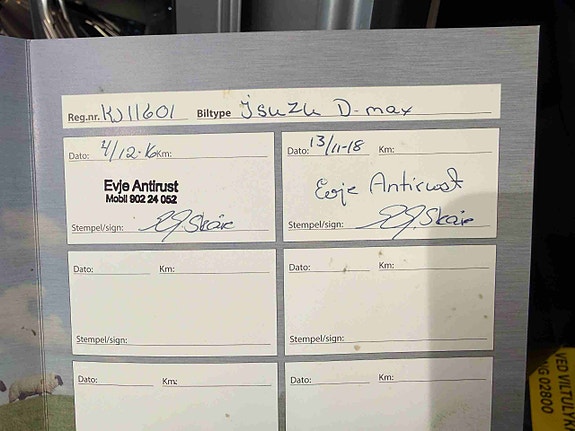 Reg.nr. KJ11601 Biltype Isuzu D-max
Dato: 4/12-16 Km:
Evje Antirust
Mobil 902 24 052
Stempel/sign:
Dato: 13/11-18 Km:
Evje Antirust
Stempel/sign:
Dato: Km:
Stempel/sign:
Dato: Km:
Stempel/sign:
Dato: Km:
Dato: Km:
VED VILTULYK
02800